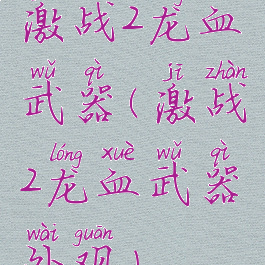 激战2龙血
wǔ qì jī zhàn
武器(激战
lóng xuè wǔ qì
2龙血武器
wài guān
外观)